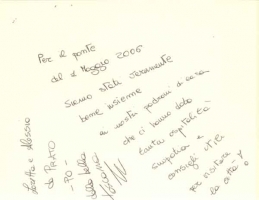 Per il ponte
del 1 Maggio 2006
siamo stati veramente
bene insieme
ai nostri padroni di casa
che ci hanno dato
tanta ospitalità
simpatia e
consigli utili
per visitare
la città
Loretta e Alessio
da PRATO
-PO-
della bella
Toscana